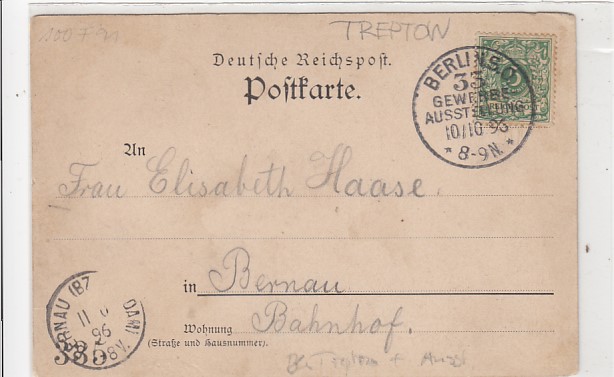 100
TREPTOW
Deutsche Reichspost.
Postkarte.
BERLIN S.O.
33
GEWERBE
AUSSTELLUNG
10/10 96
* 8-9N. *
An
Frau Elisabeth Haase
in Bernau
Wohnung Bahnhof.
(Straße und Hausnummer).
BERNAU (BZ POTSDAM)
11
96
8V.